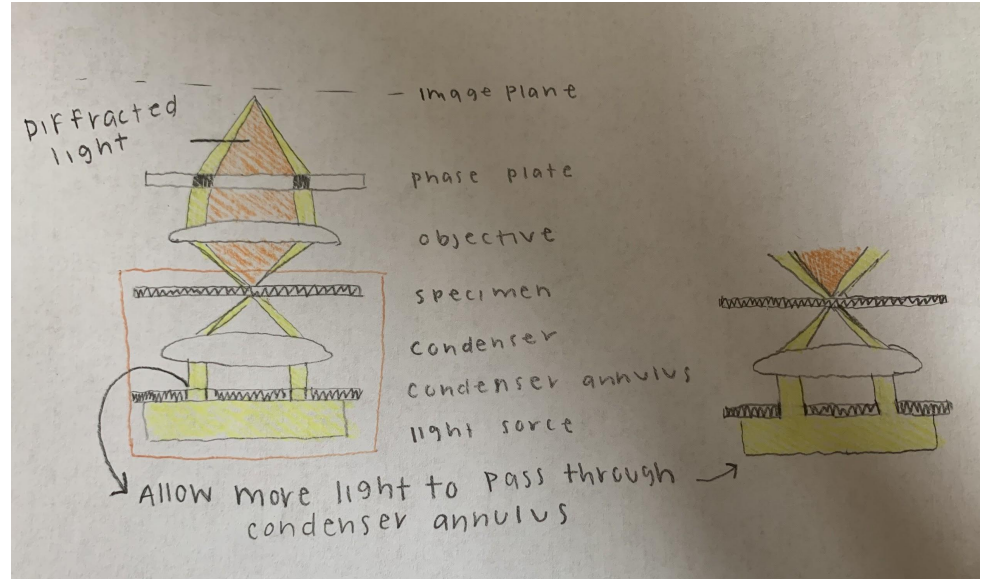 Image plane
Diffracted
light
phase plate
objective
specimen
condenser
condenser annulus
light sorce
Allow more light to pass through
condenser annulus